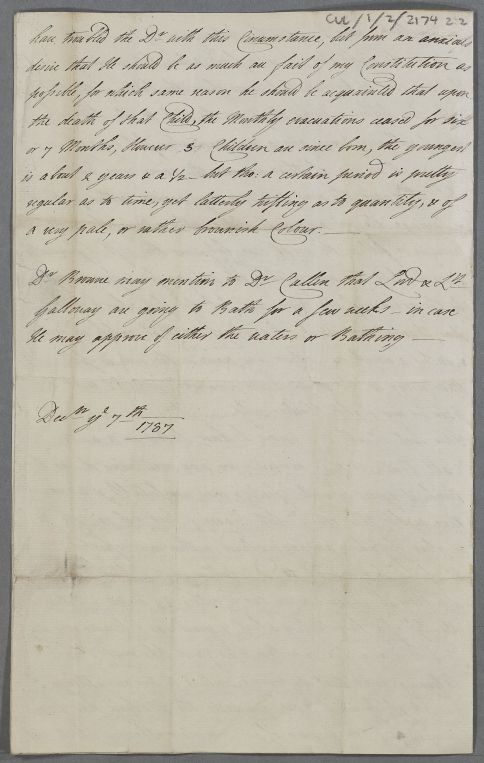 CUL/1/2/2174 2.2
have troubled the Dr. with this Circumstance, but from an anxious
desire that He should be as much au fait of my Constitution as
possible, for which same reason he should be acquainted that upon
the death of that Child, the Monthly evacuations ceased for six
or 7 Months, However 3 Children are since born, the youngest
is about 2 years & a 1/2 — but tho: a certain period is pretty
regular as to time, yet latterly trifling as to quantity, & of
a very pale, or rather brownish Colour. —
Dr. Browne may mention to Dr. Cullen that Lord & Ly.
Galloway are going to Bath for a few weeks — in case
He may approve of either the waters or Bathing —
Decbr. ye 7th
1787